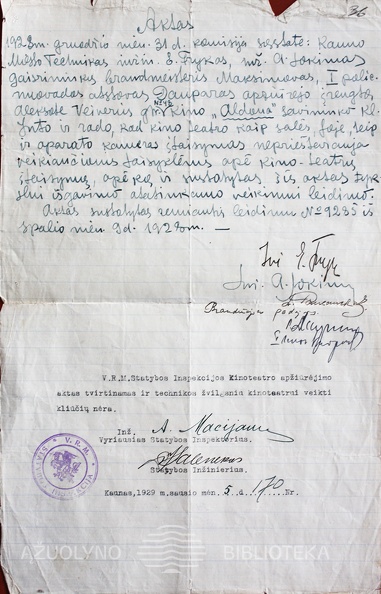 36
Aktas
1928 m. gruodžio mėn. 31 d. komisija susstatė: Kauno
Miesto Technikas inžin. E. Frykas, inž. A. Jokimas
gaisrininkų brandmeisteris Maksimovas, I polic.
nuovados atstovas Dauparas apžiūrėjo įrengtą
Aleksote Veiverių g-vė No 42 Kino „Aldona" savininko Kl.
ir rado, kad kino teatro kaip salės, foje, teip
ir aparato kameros įtaisymas neprieštarauja
veikiančioms taisyklėms apie kino-teatrų
įtaisymą, apie ką ir sustatytas šis aktas tyks-
lui išgavimo atatinkamo veikimui leidimo.
Aktas sustatytas remiantis leidimu No 9235 iš
spalio mėn. 9 d. 1928 m. —
Inž. E. Fryk
Inž. A. Jokimas
V.R.M. Statybos Inspekcijos kinoteatro apžiūrėjimo
aktas tvirtinamas ir technikos žvilgsniu kinoteatrui veikti
kliūčių nėra.
Inž. A. Macijauskas
Vyriausias Statybos Inspektorius.
Statybos Inžinierius.
Kaunas, 1929 m. sausio mėn. 5 d. 170 Nr.
V. R. M.
STATYBOS INSPEKCIJA
AŽUOLYNO BIBLIOTEKA